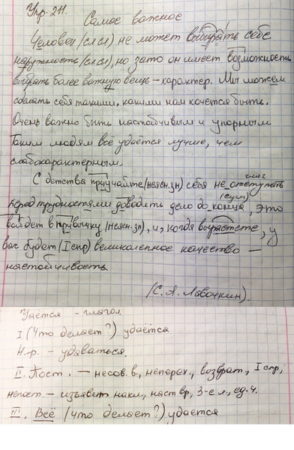 Упр. 211
Самое важное
Человек (сл сл) не может выбирать себе
(сл сл), но зато он имеет возможность
создать более важную вещь - характер. Мы можем
сделать себя такими, какими нам хочется быть.
Очень важно быть настойчивым и упорным
Таким людям всё удаётся лучше, чем
слабохарактерным.
С детства приучайте (неизм.зн) себя не отступать
перед трудностями доводить дело до конца, это
войдёт в привычку (неизм.зн), и, когда вырастете, у
вас будет (I спр) великолепное качество —
настойчивость.
(С. А. Лавочкин)
Удаётся - глагол
I (Что делает?) удаётся
Н.ф. - удаваться.
II. Пост. - несов в, неперех., возврат, I спр,
непост - изъявит накл, наст вр, 3-е л, ед.ч.
III. Всё (что делает?) удаётся